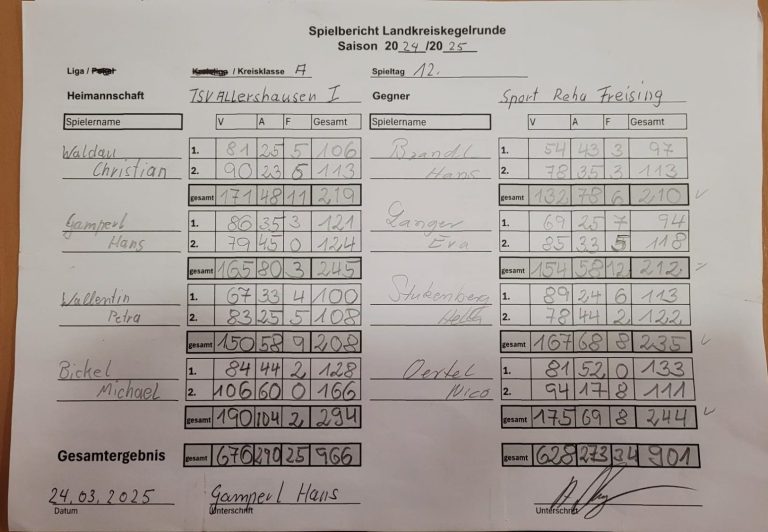 Spielbericht Landkreiskegelrunde
Saison 2024/2025
Liga / Pokal Kreisliga / Kreisklasse A Spieltag 12.
Heimannschaft TSV Allershausen I Gegner Sport Reha Freising
Spielername V A F Gesamt Spielername V A F Gesamt
Waldau 1. 81 25 5 106 Brandl 1. 54 43 3 97
Christian 2. 90 23 6 113 Hans 2. 78 35 3 113
gesamt 171 48 11 219 gesamt 132 78 6 210
Gamperl 1. 86 35 3 121 Langer 1. 69 25 7 94
Hans 2. 79 45 0 124 Eva 2. 85 33 5 118
gesamt 165 80 3 245 gesamt 154 58 12 212
Wallentin 1. 67 33 4 100 Stukenberg 1. 89 24 6 113
Petra 2. 83 25 5 108 Hella 2. 78 44 2 122
gesamt 150 58 9 208 gesamt 167 68 8 235
Bickel 1. 84 44 2 128 Oertel 1. 81 52 0 133
Michael 2. 106 60 0 166 Nico 2. 94 17 8 111
gesamt 190 104 2 294 gesamt 175 69 8 244
Gesamtergebnis gesamt 676 290 25 966 gesamt 628 273 34 901
24.03.2025 Gamperl Hans
Datum Unterschrift Unterschrift